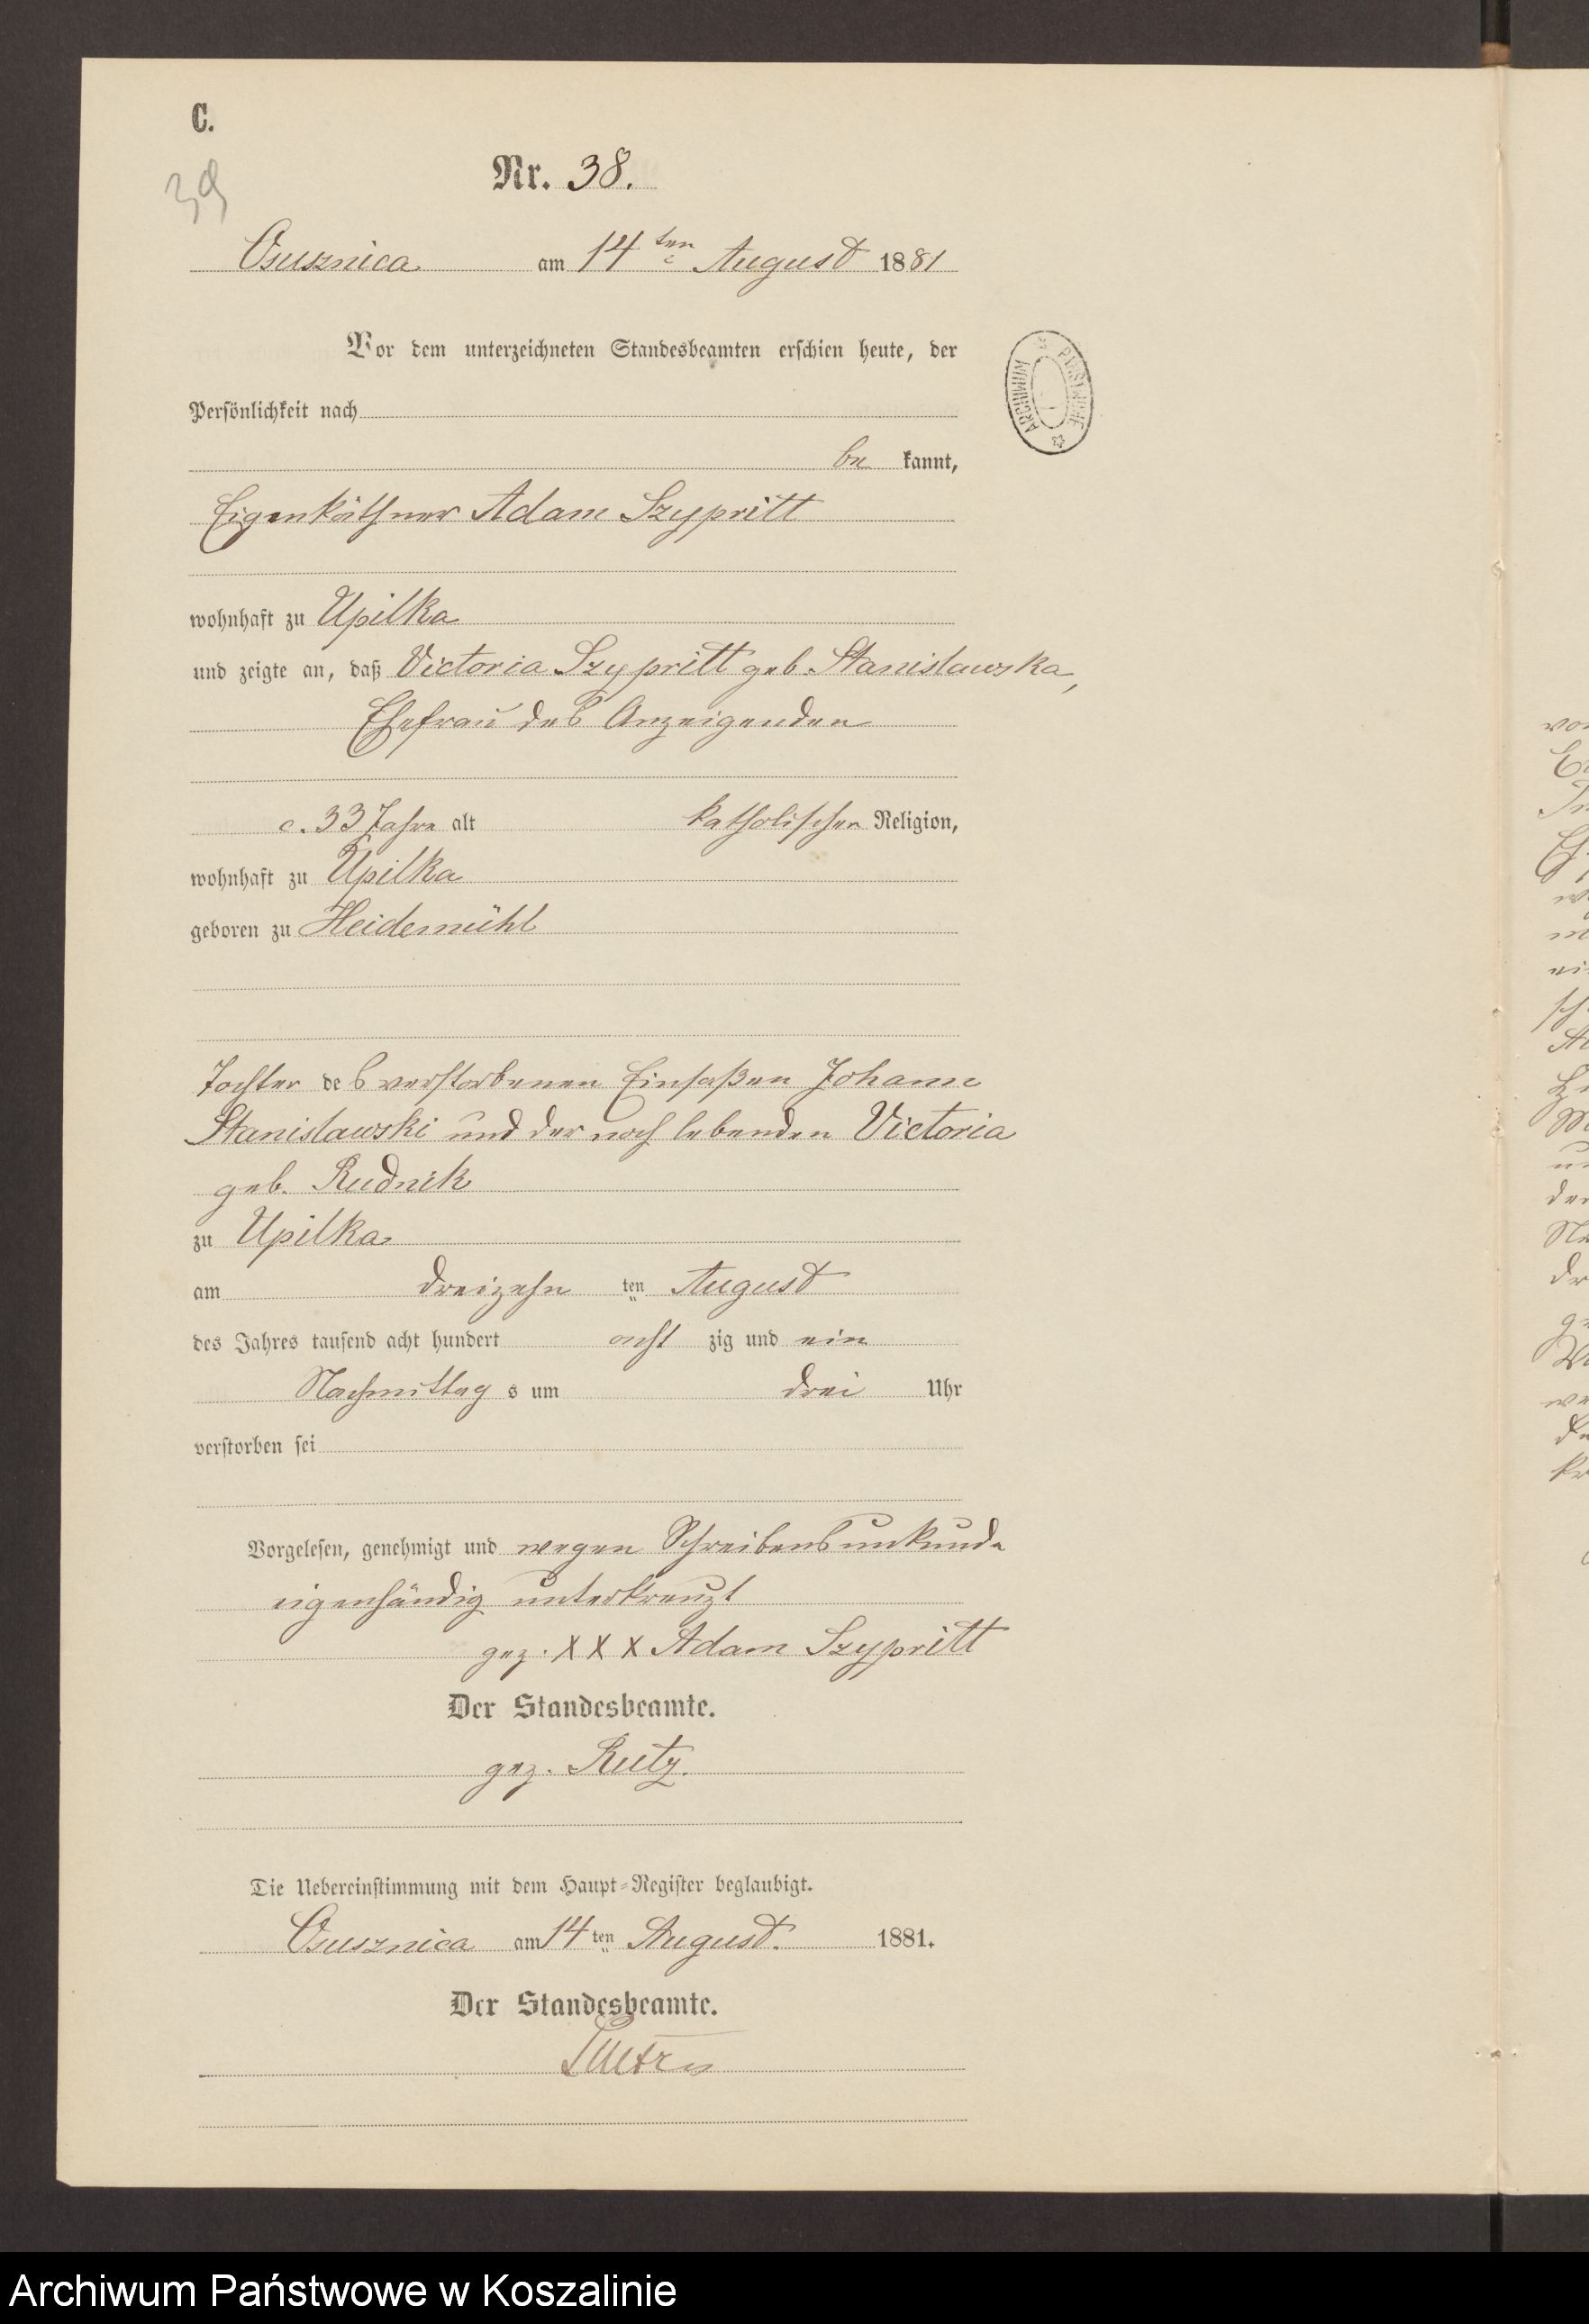 C.
39
Nr. 38.
Osusznica am 14ten August 1881
Vor dem unterzeichneten Standesbeamten erschien heute, der
Persönlichkeit nach
be kannt,
Eigenkäthner Adam Szypritt
wohnhaft zu Upilka
und zeigte an, daß Victoria Szypritt geb. Stanislawska,
Ehefrau des Anzeigenden
c. 33 Jahre alt katholischer Religion,
wohnhaft zu Upilka
geboren zu Heidemühl
Tochter des verstorbenen Einsaßen Johann
Stanislawski und der noch lebenden Victoria
geb. Rudnik
zu Upilka
am dreizehn ten August
des Jahres tausend acht hundert acht zig und ein
Nachmittag s um drei Uhr
verstorben sei
Vorgelesen, genehmigt und wegen Schreibensunkunde
eigenhändig unterkreuzt
gez. X X X Adam Szypritt
Der Standesbeamte.
gez. Rutz.
Die Uebereinstimmung mit dem Haupt-Register beglaubigt.
Osusznica am 14ten August. 1881.
Der Standesbeamte.
ARCHIWUM PAŃSTWOWE
Archiwum Państwowe w Koszalinie